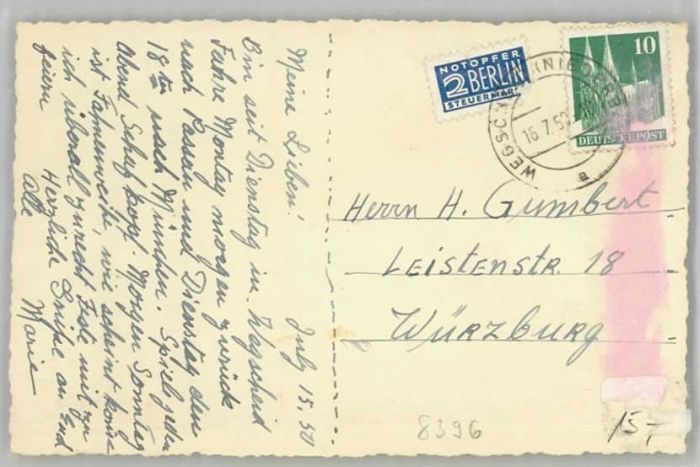 July 15. 50
Meine Lieben!
Bin seit Dienstag in Wegscheid
Fahre Montag morgen zurück
nach Passau und Dienstag den
18ten nach München. Spiel jeden
Abend Schafkopf. Morgen Sonntag
ist Fahnenweihe, wie scheint komm
ich überall zurecht Feste mit zu
feiern
Herzliche Grüße an Euch
Alle Marie
NOTOPFER
2 BERLIN
STEUERMARKE
10
DEUTSCHE POST
WEGSCH
16.7.50
a
Herrn H. Gumbert
Leistenstr. 18
Würzburg
8396
15,-